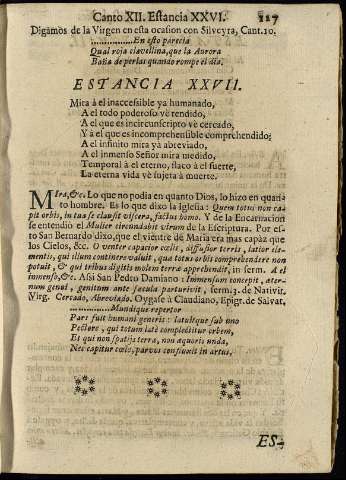 Canto XII. Estancia XXVI. 127
Digàmos de la Virgen en esta ocasion con Silveyra, Cant. 10.
................En esto parecia
Qual roja clavellina, que la Aurora
Baña de perlas quando rompe el dia.
ESTANCIA XXVII.
Mira à el inaccesible ya humanado,
A el todo poderoso vè rendido,
A el que es incircunscripto vè cercado,
Y à el que es incomprehensible comprehendido:
A el infinito mira yà abreviado,
A el inmenso Señor mira medido,
Temporal à el eterno, flaco à el fuerte,
La eterna vida vè sujeta à muerte.
Mira, &c. Lo que no podia en quanto Dios, lo hizo en quan-
to hombre. Es lo que dixo la Iglesia: Quem totus non ca-
pit orbis, in tua se clausit viscera, factus homo. Y de la Encarnacion
se entendiò el Mulier circundabit virum de la Escriptura. Por es-
to San Bernardo dixo, que el vientre de Maria era mas capàz que
los Cielos, &c. O venter capacior cœlis, diffusior terris, latior ele-
mentis, qui illum continere valuit, qua totus orbis comprehendere non
potuit, & qui tribus digitis molem terræ apprehendit, in serm. A el
inmenso, &c. Asi San Pedro Damiano: Immensum concepit, æter-
num genui, genitum ante sæcula parturivit, serm. 3. de Nativit.
Virg. Cercado, Abreviado. Oygase à Claudiano, Epigr. de Salvat.
................Mundique repertor
Pars fuit humani generis: latuitque sub uno
Pectore, qui totum latè complectitur orbem,
Et qui non spatijs terra, non æquoris unda,
Nec capitur cœlo, parvos confluxit in artus.
ES-